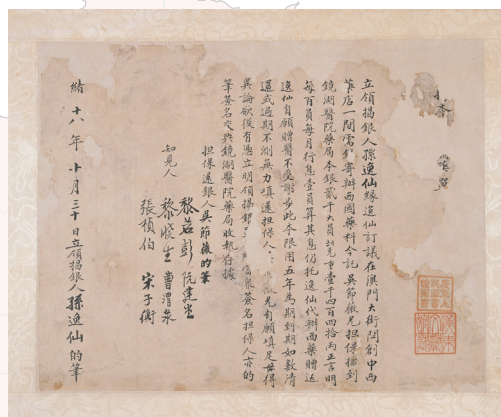 立領揭銀人孫逸仙緣逸仙訂議在澳門大街開創中西
藥店一間需銀寄辦西國藥料今託吳節薇兄担保揭到
鏡湖醫院藥局本銀貳千大員七兌重壹千四百四拾兩正言明
每百員每月行息壹員算其息仍托逸仙代辦西藥贈送
逸仙自願贈醫不受謝步此本限用五年為期到期如數清
還或過期不測無力填還担保人兄自願填足毋得
異論欲後有憑立明領揭銀眾簽名担保人亦的
筆簽名交與鏡湖醫院藥局收執存據
担保還銀人吳節薇的筆
知見人
黎若彭 阮建堂
黎曉生 曹渭泉
張楨伯 宋子衡
緒十八年十月三十日立領揭銀人孫逸仙的筆